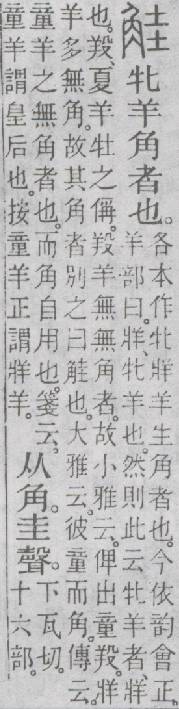 觟 牝羊角者也。
各本作牝牂羊生角者也。今依韵會正。
羊部曰。牂、牝羊也。然則此云牝羊者、牂
也。羖、夏羊牡之偁。羖羊無無角者。故小雅云。俾出童羖。牂
羊多無角。故其角者別之曰觟也。大雅云。彼童而角。傳云。
童羊之無角者也。而角自用也。箋云。
童羊謂皇后也。按童羊正謂牂羊。
从角。圭聲。
下瓦切。
十六部。